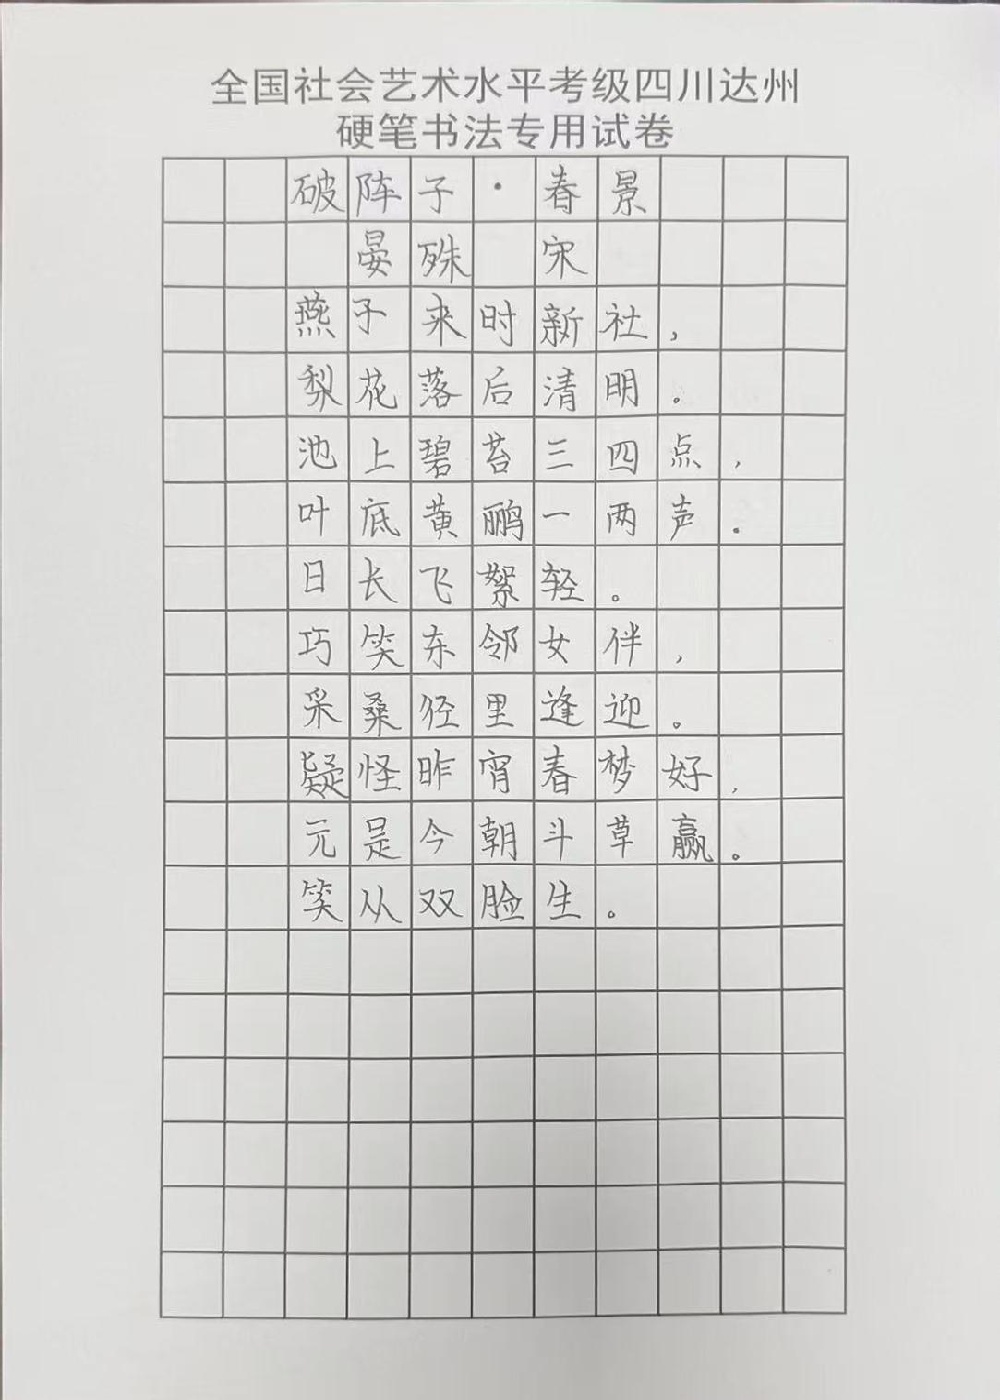 全国社会艺术水平考级四川达州
硬笔书法专用试卷
破阵子·春景
晏殊 宋
燕子来时新社，
梨花落后清明。
池上碧苔三四点，
叶底黄鹂一两声。
日长飞絮轻。
巧笑东邻女伴，
采桑径里逢迎。
疑怪昨宵春梦好，
元是今朝斗草赢。
笑从双脸生。